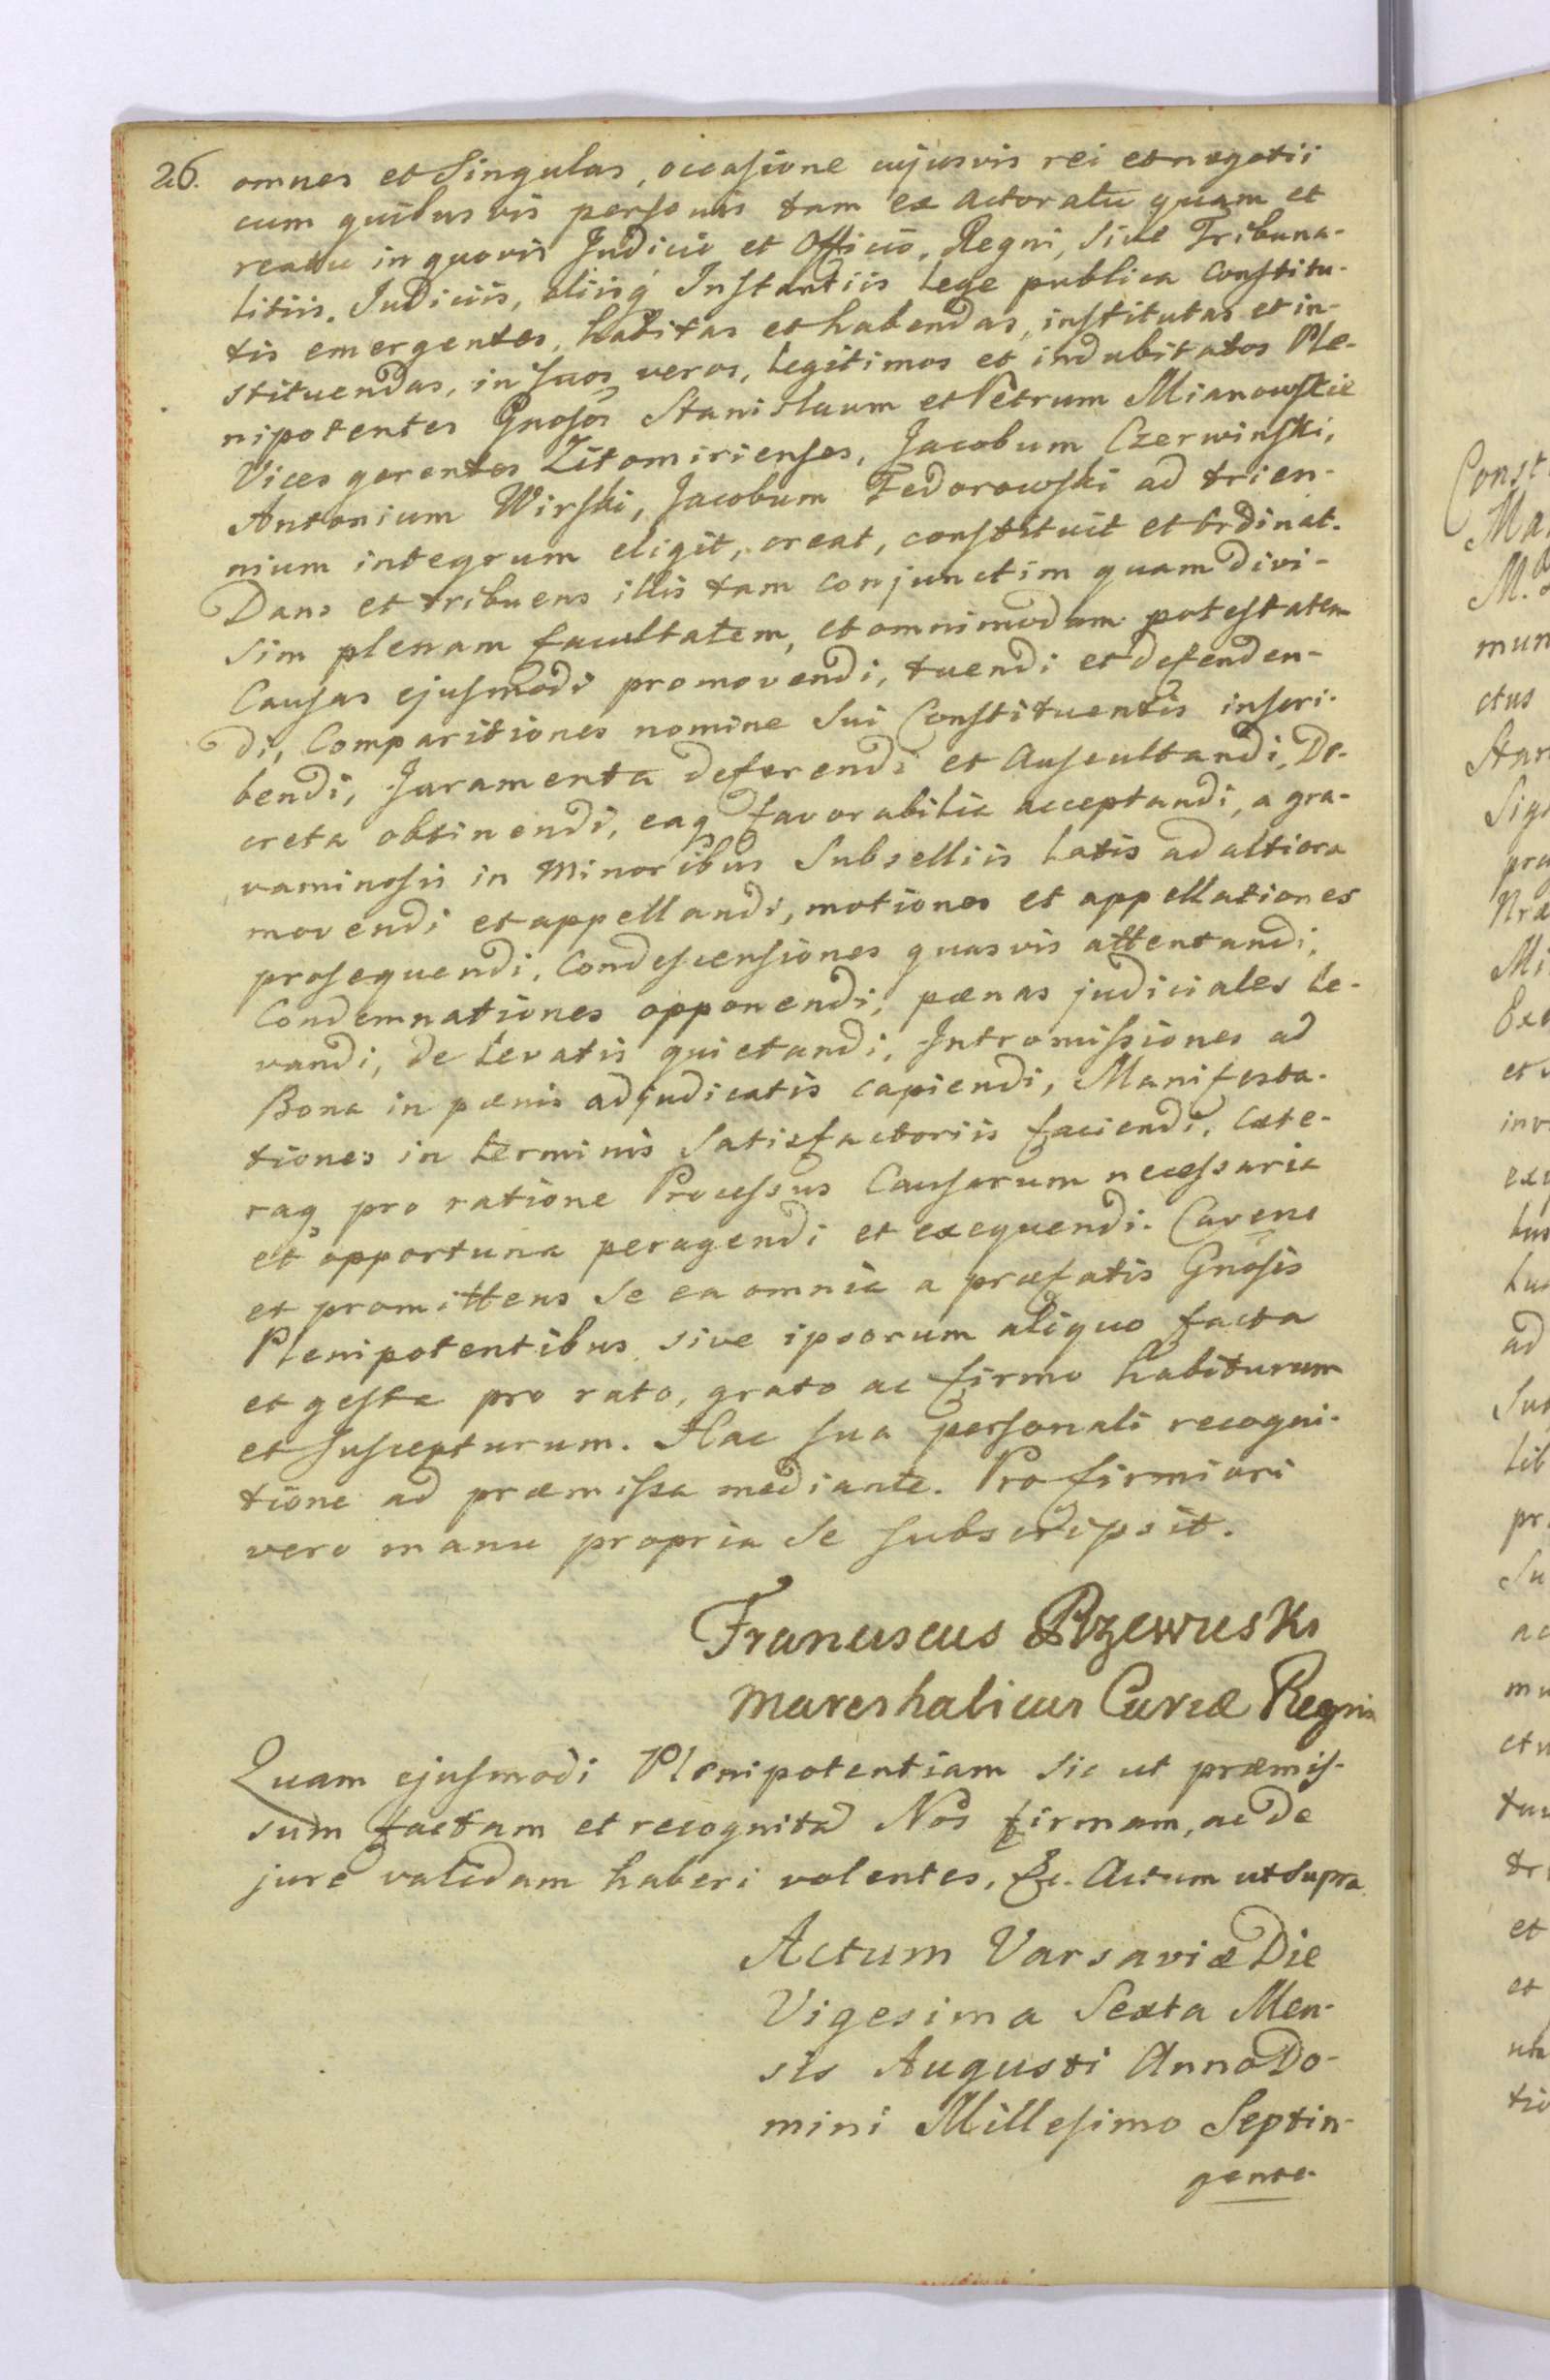 26. omnes et Singulas, occasione cujusvis rei et negotii
cum quibusvis personis tam ex Actoratu quam et
reatu in quovis Judicio et Officio, Regni, sive Tribuna-
litiis. Judiciis, aliisq Instantiis Lege publica Constitu-
tis emergentes, habitas et habendas, institutas et in-
stituendas, in suos veros, Legitimos et indubitatos Ple-
nipotentes Gnosos Stanislaum et Petrum Mianowskie
Vices gerentes Zitomirienses, Jacobum Czerwinski,
Antonium Wirski, Jacobum Fedorowski ad trien-
nium integrum eligit, creat, constituit et Ordinat.
Dans et tribuens illis tam conjunctim quam divi-
sim plenam facultatem, et omnimodam potestatem
Causas ejusmodi promovendi, tuendi et defenden-
di, Comparitiones nomine Sui Constituentis inscri-
bendi, Juramenta deferendi et Auscultandi, De-
creta obtinendi, eaq favorabilia acceptandi, a gra-
vaminosis in Minoribus Subselliis Latis ad altiora
movendi et appellandi, motiones et appellationes
prosequendi, Condescensiones quasvis attentandi,
Condemnationes opponendi, pœnas judiciales Le-
vandi, de Levatis quietandi, Intromissiones ad
Bona in pœnis adjudicatis capiendi, Manifesta-
tiones in terminis Satisfactoriis faciendi, Cæte-
raq pro ratione Processus Causarum necessaria
et opportuna peragendi et exequendi. Cavens
et promittens Se ea omnia a præfatis Gnosis
Plenipotentibus sive ipsorum aliquo facta
et gesta pro rato, grato ac firmo habiturum
et Suscepturum. Hac sua personali recogni-
tione ad præmissa mediante. Pro firmiori
vero manu propria Se subscripsit.
Franciscus Rzewuski
Mareshalicus Curiæ Regni
Quam ejusmodi Plenipotentiam sic ut præmis-
sum factam et recognitã Nos firmam, ac de
jure validam haberi volentes, &c. Actum ut Supra
Actum Varsaviæ Die
Vigesima Sexta Men-
sis Augusti Anno Do-
mini Millesimo Septin-
gente-
Const
Ma
M.
mun
ctus
Stan
Sig
præ
Mi
et
inv
ad
Lib
pr
Su
ac
mu
ctu
et
et